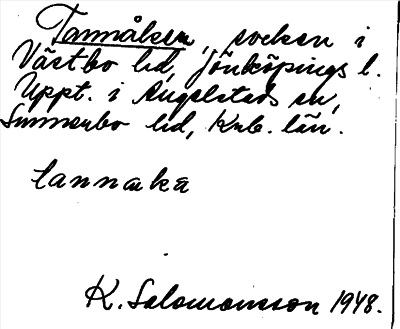 Tannåker, socken i
Västbo hd, Jönköpings l.
Uppt. i Angelstads sn,
Sunnerbo hd, Krb. län.
tannaka
K. Salomonsson 1948.